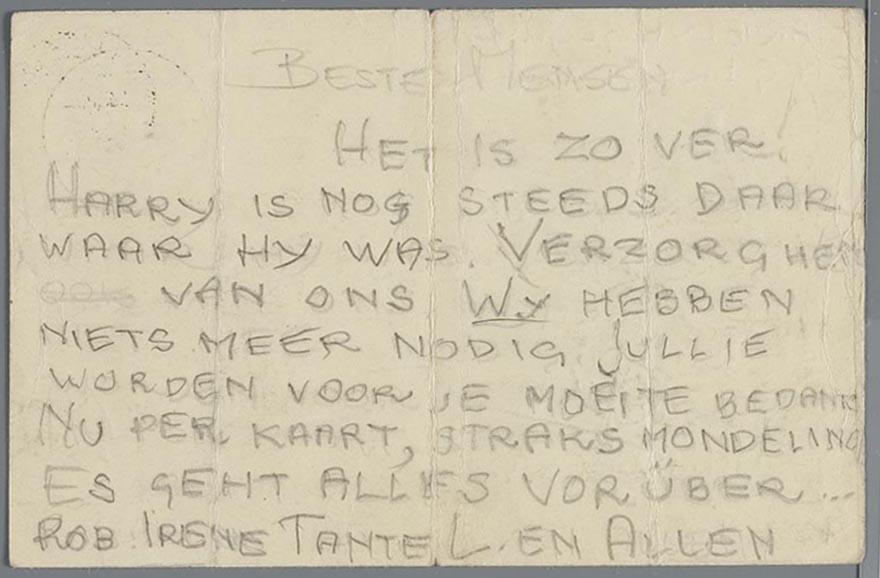 BESTE MENSEN
HET IS ZO VER!
HARRY IS NOG STEEDS DAAR
WAAR HY WAS. VERZORG HEM
OOK VAN ONS WY HEBBEN
NIETS MEER NODIG JULLIE
WORDEN VOOR JE MOEITE BEDANKT
NU PER KAART, STRAKS MONDELING
ES GEHT ALLES VORÜBER ...
ROB IRENE TANTE L. EN ALLEN